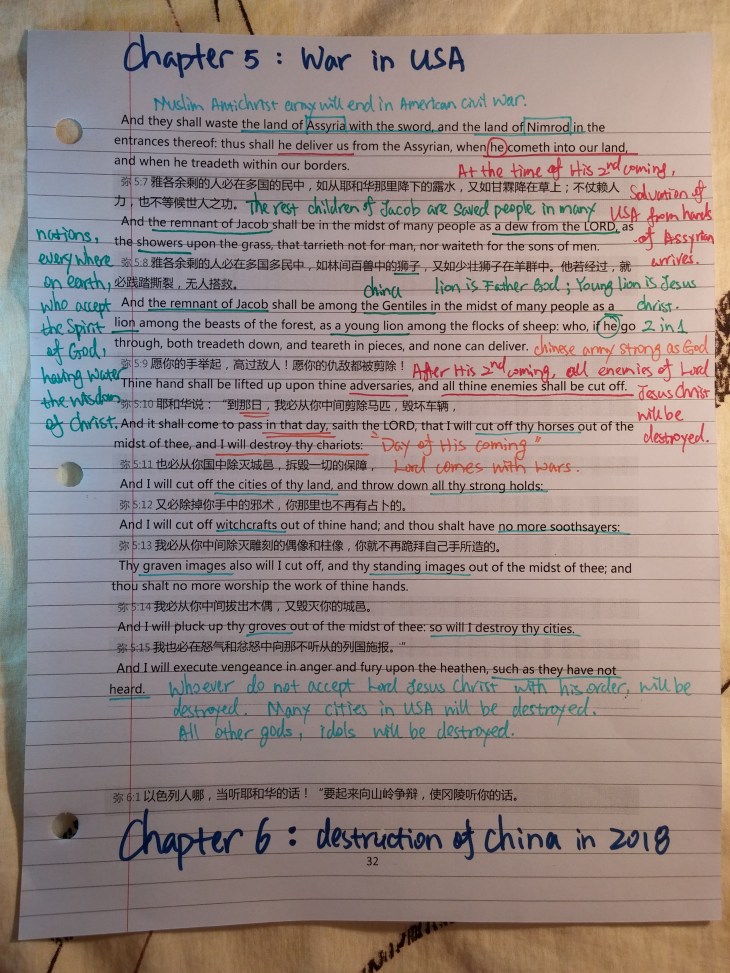 Chapter 5 : War in USA
Muslim Antichrist army will end in American civil war.
And they shall waste the land of Assyria with the sword, and the land of Nimrod in the
entrances thereof: thus shall he deliver us from the Assyrian, when he cometh into our land,
and when he treadeth within our borders.
At the time of His 2nd coming,
弥 5:7 雅各余剩的人必在多国的民中，如从耶和华那里降下的露水，又如甘霖降在草上；不仗赖人
力，也不等候世人之功。
The rest children of Jacob are saved people in many
nations,
everywhere
on earth,
who accept
the Spirit
of God,
having water
the wisdom
of Christ.
Salvation of
USA from hands
of Assyrian
arrives.
And the remnant of Jacob shall be in the midst of many people as a dew from the LORD, as
the showers upon the grass, that tarrieth not for man, nor waiteth for the sons of men.
弥 5:8 雅各余剩的人必在多国多民中，如林间百兽中的狮子，又如少壮狮子在羊群中。他若经过，就
必践踏撕裂，无人搭救。
China
lion is Father God ; Young lion is Jesus
Christ.
2 in 1
And the remnant of Jacob shall be among the Gentiles in the midst of many people as a
lion among the beasts of the forest, as a young lion among the flocks of sheep: who, if he go
through, both treadeth down, and teareth in pieces, and none can deliver.
chinese army strong as God
弥 5:9 愿你的手举起，高过敌人！愿你的仇敌都被剪除！
After His 2nd coming, all enemies of Lord
Jesus Christ
will be
destroyed.
Thine hand shall be lifted up upon thine adversaries, and all thine enemies shall be cut off.
弥 5:10 耶和华说：“到那日，我必从你中间剪除马匹，毁坏车辆，
And it shall come to pass in that day, saith the LORD, that I will cut off thy horses out of the
midst of thee, and I will destroy thy chariots:
"Day of His coming"
弥 5:11 也必从你国中除灭城邑，拆毁一切的保障，
Lord comes with wars.
And I will cut off the cities of thy land, and throw down all thy strong holds:
弥 5:12 又必除掉你手中的邪术，你那里也不再有占卜的。
And I will cut off witchcrafts out of thine hand; and thou shalt have no more soothsayers:
弥 5:13 我必从你中间除灭雕刻的偶像和柱像，你就不再跪拜自己手所造的。
Thy graven images also will I cut off, and thy standing images out of the midst of thee; and
thou shalt no more worship the work of thine hands.
弥 5:14 我必从你中间拔出木偶，又毁灭你的城邑。
And I will pluck up thy groves out of the midst of thee: so will I destroy thy cities.
弥 5:15 我也必在怒气和忿怒中向那不听从的列国施报。”
And I will execute vengeance in anger and fury upon the heathen, such as they have not
heard.
Whoever do not accept Lord Jesus Christ with his order, will be
destroyed. Many cities in USA will be destroyed.
All other gods, idols will be destroyed.
弥 6:1 以色列人哪，当听耶和华的话！“要起来向山岭争辩，使冈陵听你的话。
Chapter 6 : destruction of China in 2018
32